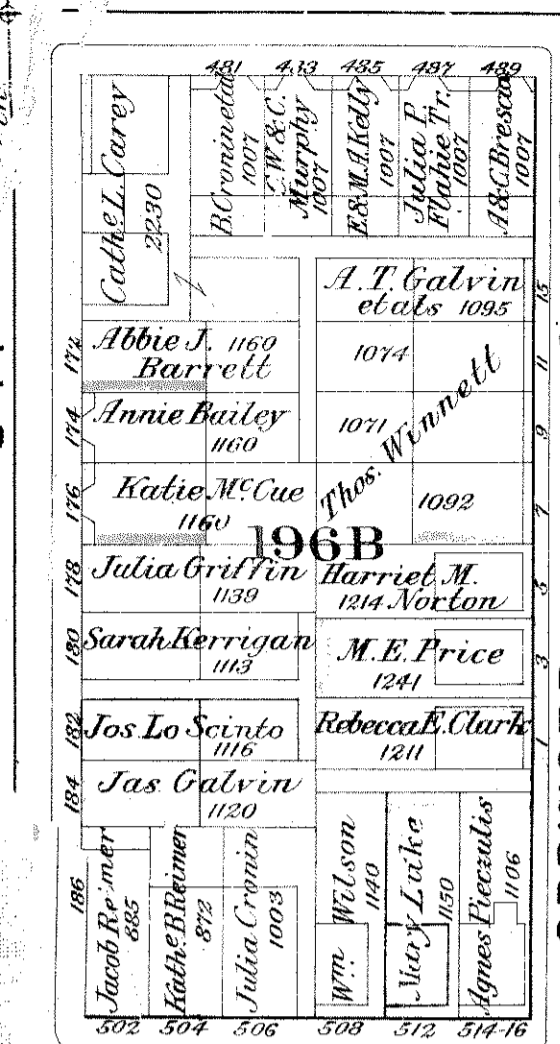 481 433 485 487 489
Cathe L. Carey
2230
B. Cronin etal
1007
C. W. & C.
Murphy
1007
E & M. A. Kelly
1007
Julia P.
Flahie Tr.
1007
A & G. Brescia
1007
A. T. Galvin
et als 1095
15
172
Abbie J. 1160
Barrett
1074
11
174
Annie Bailey
1160
1071
9
Thos. Winnett
176
Katie McCue
1160
1092
7
196B
178
Julia Griffin
1139
Harriet M.
1214 Norton
5
180
Sarah Kerrigan
1113
M. E. Price
1241
3
182
Jos. Lo Scinto
1116
Rebecca E. Clark
1211
1
184
Jas. Galvin
1120
186
Jacob Reimer
885
Kathe B Reimer
872
Julia Cronin
1003
Wm Wilson
1140
Mary Luike
1150
Agnes Pieczulis
1106
502 504 506 508 512 514-16